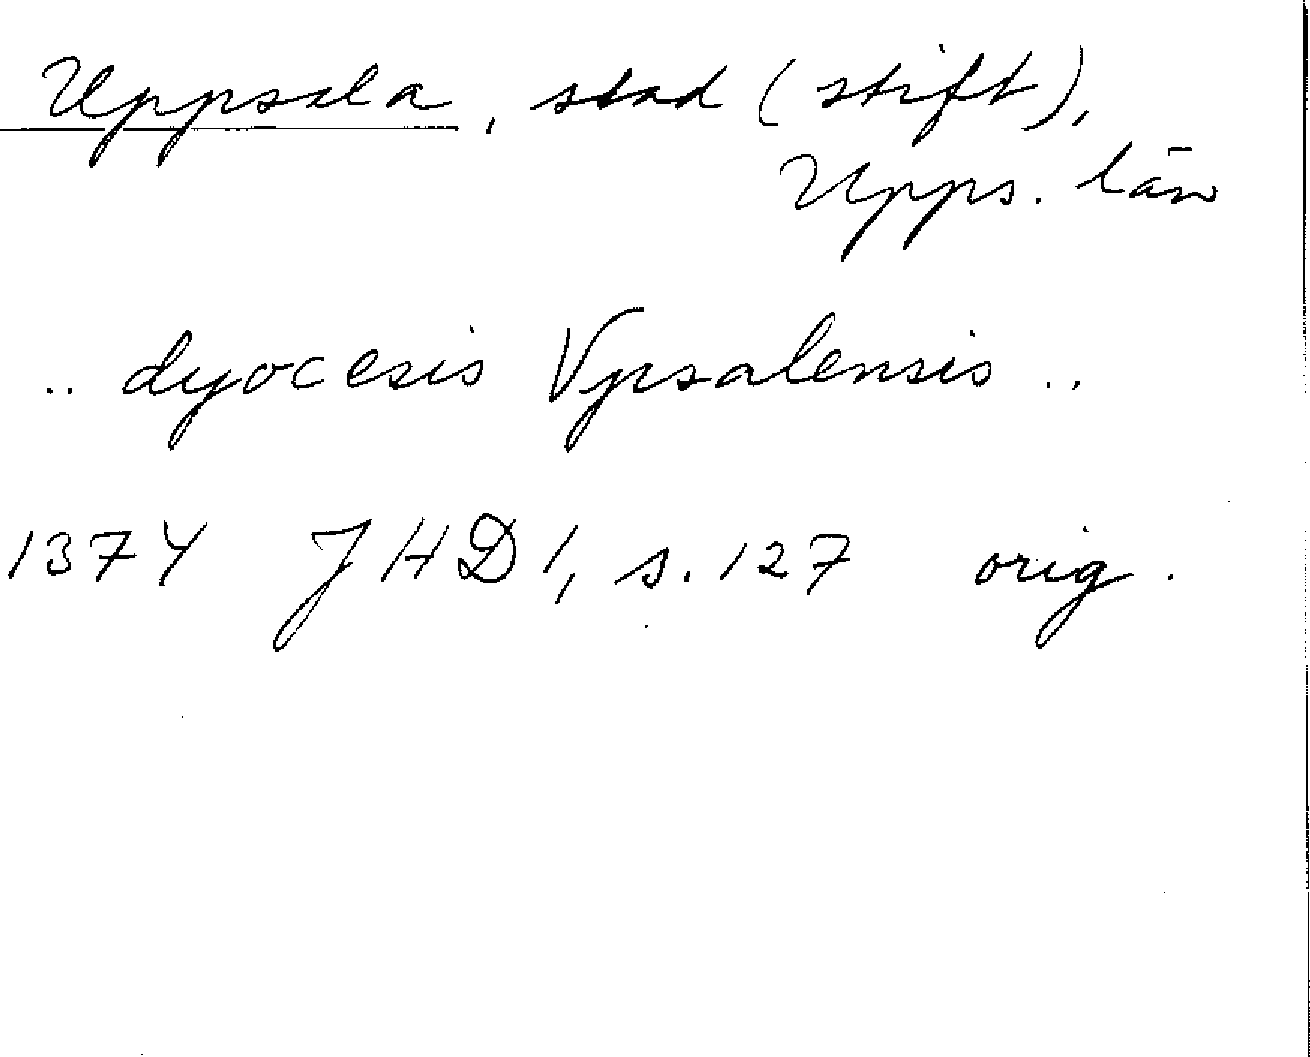 Uppsala, stad (stift),
Upps. län
.. dyocesis Vpsalensis ..
1374 JHD 1, s. 127 orig.